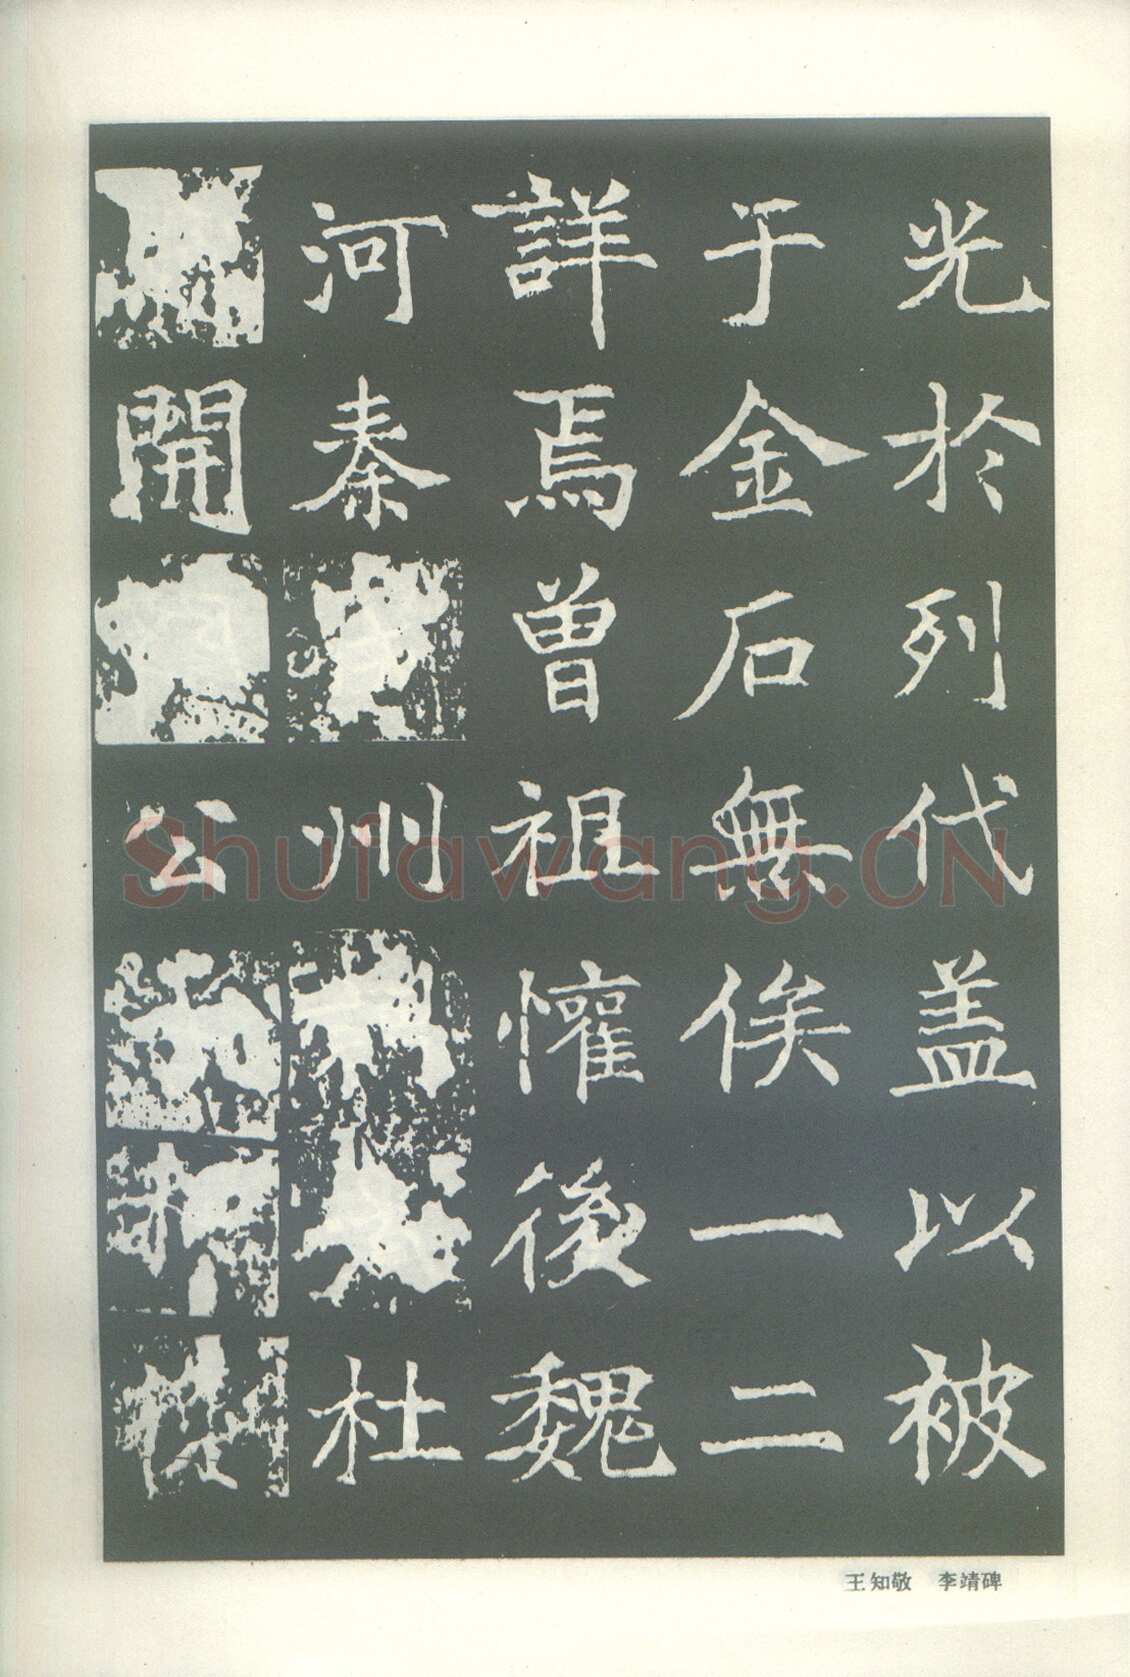 光於列代盖以被
于金石無俟一二
詳焉曾祖懽後魏
河秦州杜
開公
王知敬 李靖碑
Shufawang.CN